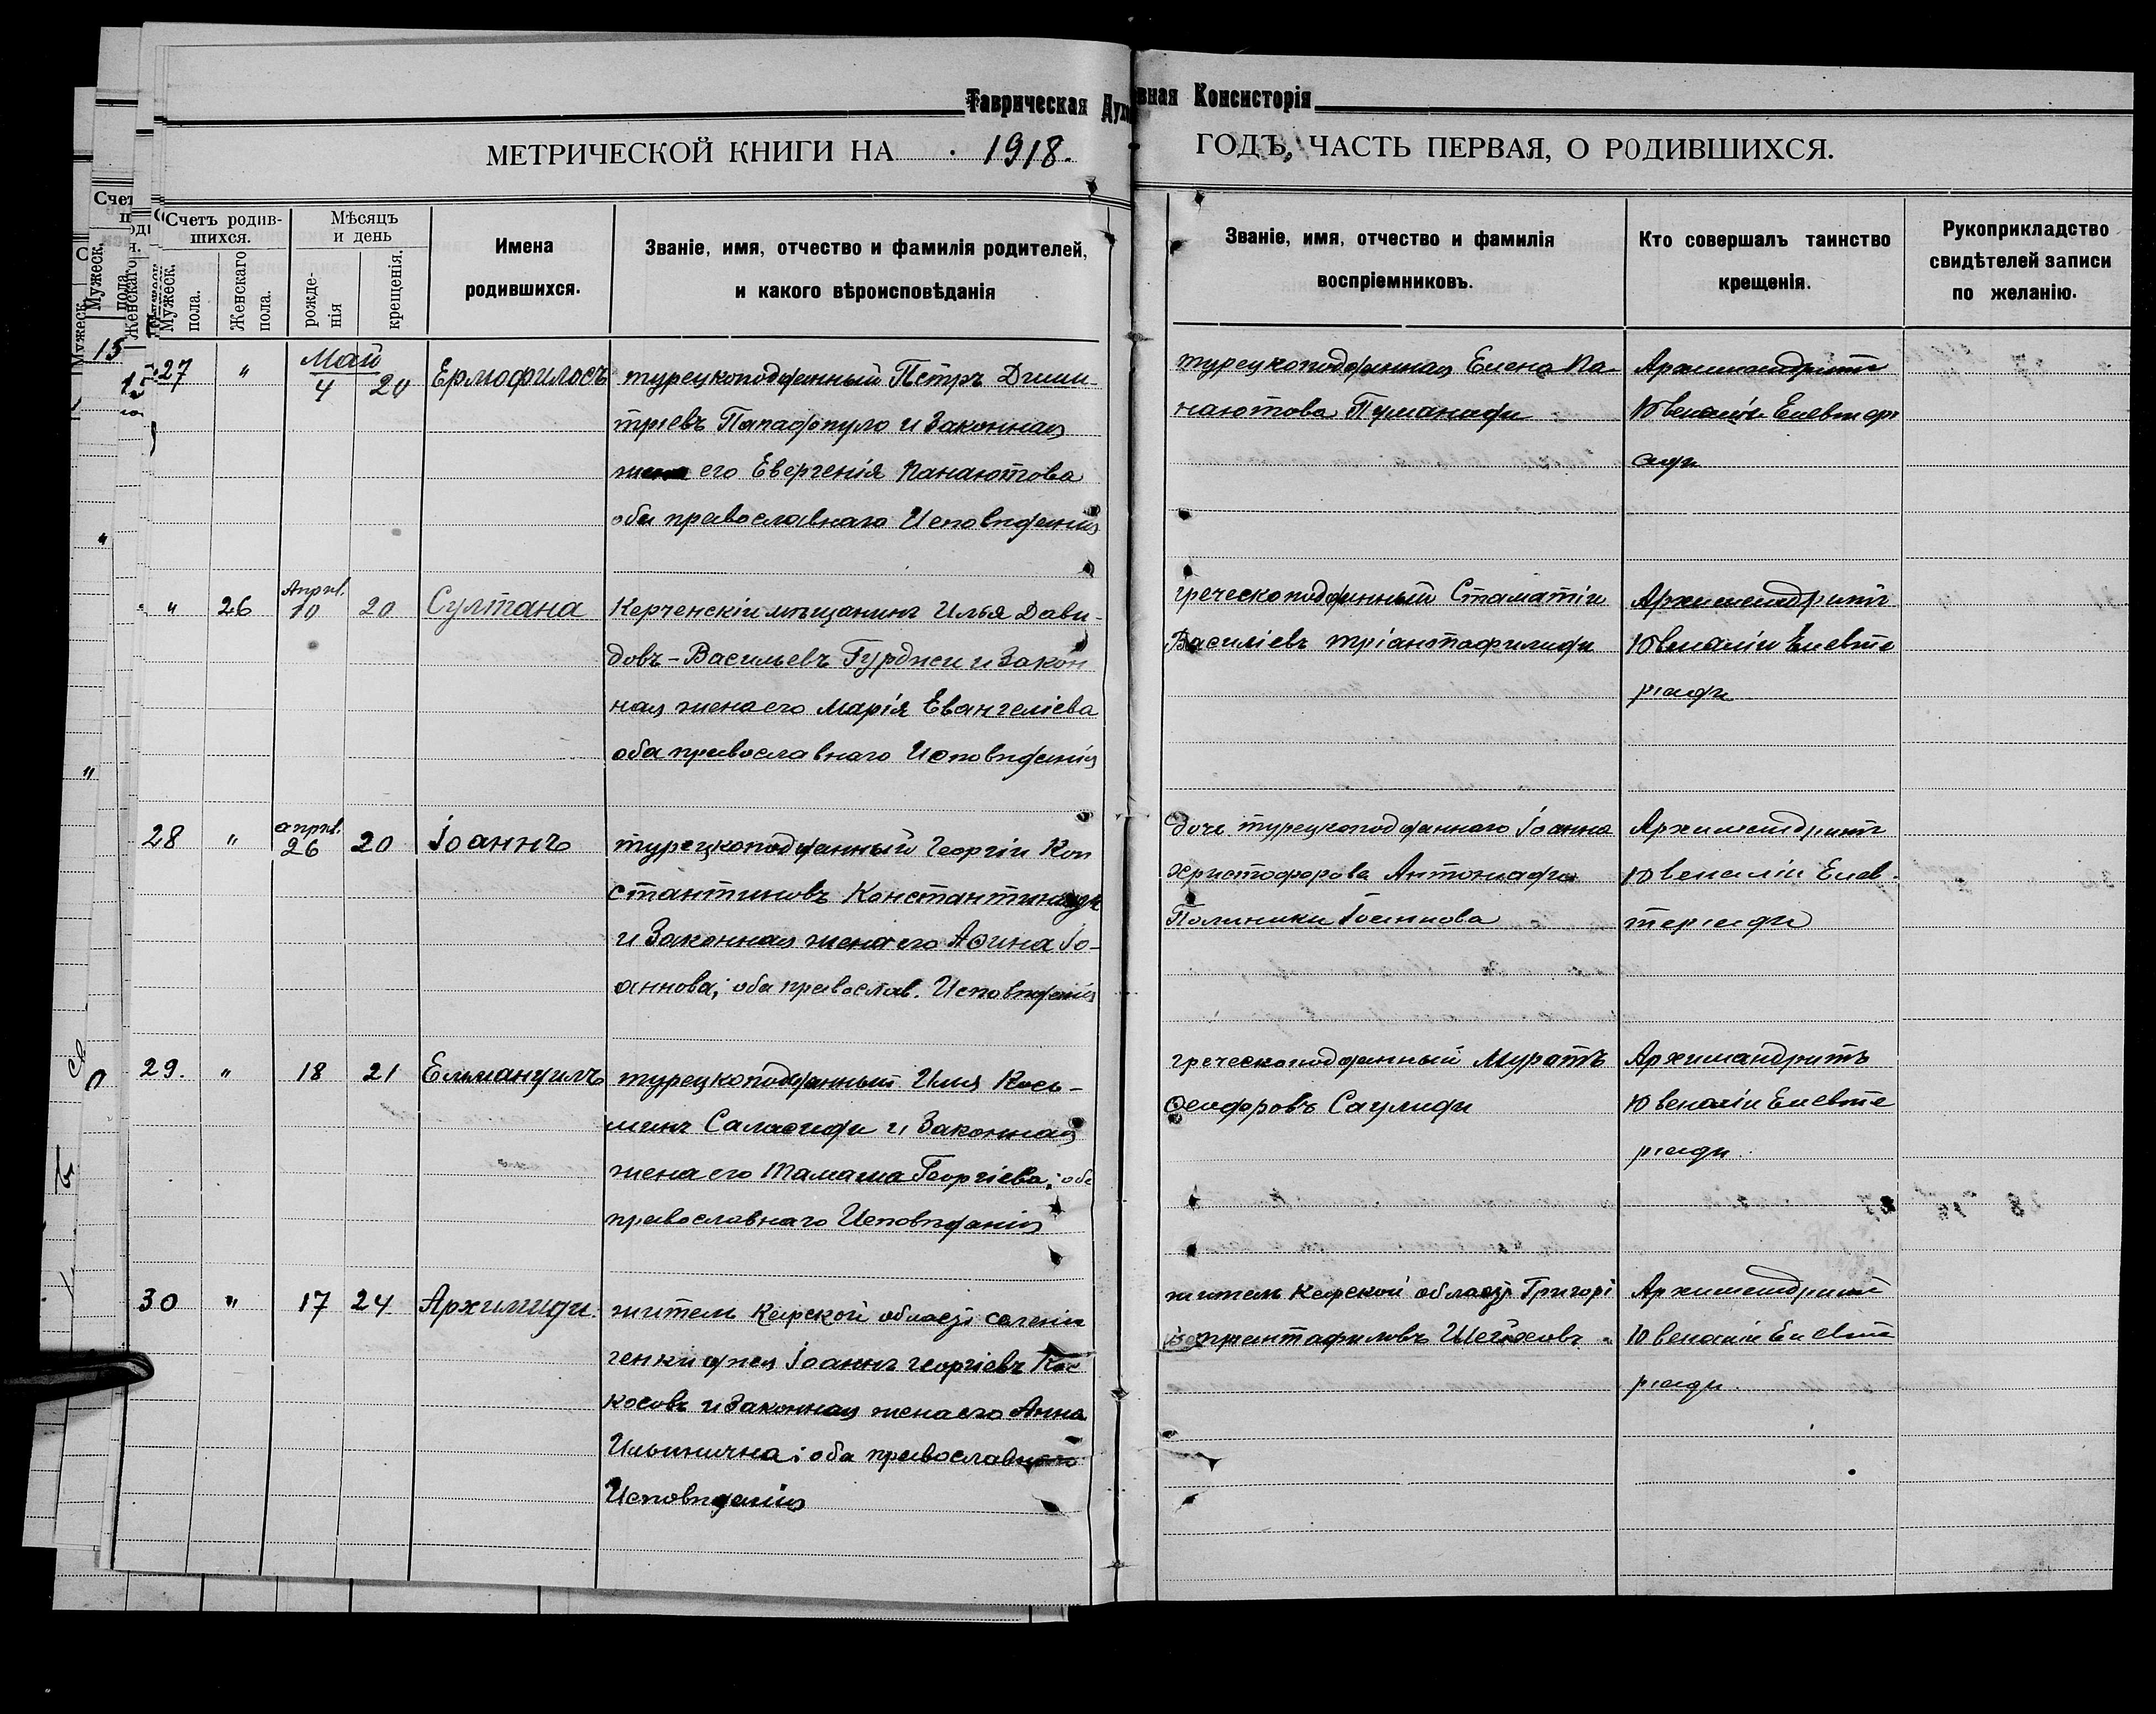 Таврическая Духовная Консисторія
МЕТРИЧЕСКОЙ КНИГИ НА 1918. ГОДЪ, ЧАСТЬ ПЕРВАЯ, О РОДИВШИХСЯ.
Счетъ родив-
шихся.
Мужеск. пола.
Женскаго пола.
Мѣсяцъ
и день
рожде-
нія
крещенія.
Имена
родившихся.
Званіе, имя, отчество и фамилія родителей,
и какого вѣроисповѣданія
Званіе, имя, отчество и фамилія
воспріемниковъ.
Кто совершалъ таинство
крещенія.
Рукоприкладство
свидѣтелей записи
по желанію.
Май
27 " 4 20 Ермофилосъ
турецкоподданный Петръ Дими-
тріевъ Пападопуло и Законная
жена его Евергенія Панаютова
оба православнаго Исповѣданія
турецкоподданная Елена Па-
наютова Туманади
Архимандритъ
Ювеналій Елевтері
ади
" 26 Април. 10 20 Султана
Керченскій мѣщанинъ Илья Дави-
довъ-Васильевъ Гурджи и Закон
ная жена его Марія Евангеліева
оба православнаго Исповѣданія
греческоподданный Стаматій
Василіевъ тріантафилиди
Архимандритъ
Ювеналій Елевте
ріади
28 " април. 26 20 Іоаннъ
турецкоподданный Георгій Кон
стантиновъ Константиниди
и Законная жена его Аѳина Іо-
аннова; оба православ. Исповѣданія
дочь турецкоподданнаго Іоанна
Христофорова Антониади
Полиники Іоаннова
Архимандритъ
Ювеналій Елев-
теріади
29. " 18 21 Еммануилъ
турецкоподданный Илія Кось-
минъ Саласиди и Законная
жена его Тамаша Георгіева; оба
православнаго Исповѣданія
греческоподданный Муратъ
Ѳеодоровъ Саулиди
Архимандритъ
Ювеналій Елевте
ріади.
30 " 17 24 Архимиди.
житель Карской област селенія
Іоаннъ Георгіевъ Кок
косовъ и Законная жена его Анна
Ильинична; оба православнаго
Исповѣданія
житель Карской област Григорі
Архимандритъ
Ювеналій Елевте
ріади.